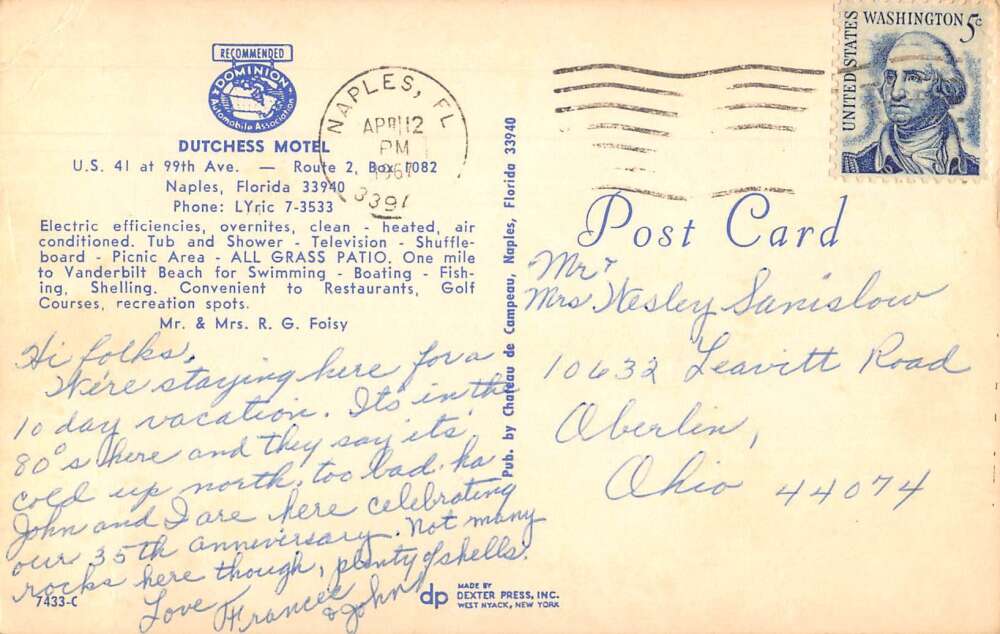 RECOMMENDED
DOMINION
Automobile Association
DUTCHESS MOTEL
U.S. 41 at 99th Ave. — Route 2, Box 7082
Naples, Florida 33940
Phone: LYric 7-3533
Electric efficiencies, overnites, clean - heated, air
conditioned. Tub and Shower - Television - Shuffle-
board - Picnic Area - ALL GRASS PATIO. One mile
to Vanderbilt Beach for Swimming - Boating - Fish-
ing, Shelling. Convenient to Restaurants, Golf
Courses, recreation spots.
Mr. & Mrs. R. G. Foisy
Hi folks,
We're staying here for a
10 day vacation. It's in the
80°s here and they say it's
cold up north, too bad. ha
John and I are here celebrating
our 35th anniversary. Not many
rocks here though, plenty of shells.
Love
Frances
& John
7433-C
NAPLES, FL
APR 12
PM
1967
Pub. by Chateau de Campeau, Naples, Florida 33940
dp
MADE BY
DEXTER PRESS, INC.
WEST NYACK, NEW YORK
UNITED STATES
WASHINGTON 5c
Post Card
Mr &
Mrs Wesley Sanislow
10632 Leavitt Road
Oberlin,
Ohio 44074